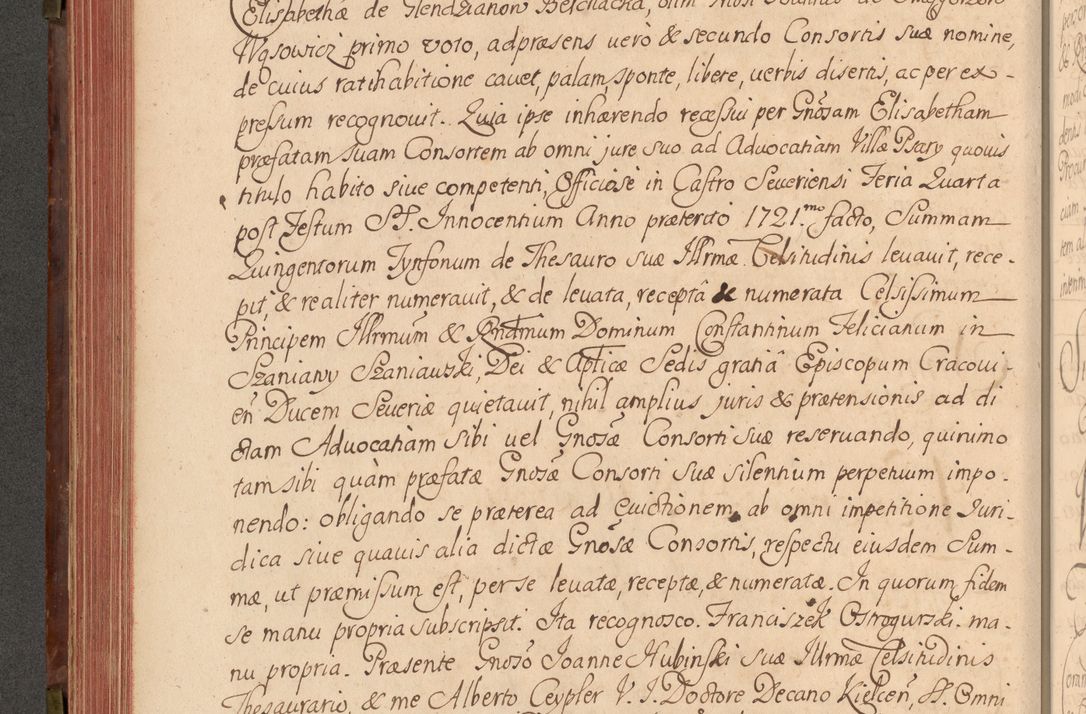 Elisabethæ de Glendzianon Belchacka, olim
Wąsowicz primo voto, ad præsens verò & secundo Consortis suæ nomine,
de cuius ratihabitione cavet, palam, sponte, libere, verbis disertis, ac per ex-
pressum recognovit. Quia ipse inhærendo recessui per Gnosam Elisabetham
præfatam suam Consortem ab omni jure suo ad Advocatiam Villæ Psary quovis
titulo habito sive competenti, Officiosè in Castro Severiensi Feria Quarta
post Festum S.S. Innocentium Anno præterito 1721.mo facto, Summam
Quingentorum Tynfonum de Thesauro suæ Illrmæ Celsitudinis levavit, rece-
pit, & realiter numeravit, & de levata, receptâ & numerata Celsissimum
Principem Illrmum & Rndmum Dominum Constantinum Felicianum in
Szaniavy Szaniawski, Dei & Apticæ Sedis gratiâ Episcopum Cracovi-
eñ Ducem Severiæ quietavit, nihil amplius juris & prætensionis ad di
ctam Advocatiam sibi vel Gnosæ Consorti suæ reservando, quinimo
tam sibi quàm præfatæ Gnosæ Consorti suæ silentium perpetuum impo-
nendo: obligando se præterea ad Evictionem ab omni impetitione Juri-
dica sive quavis alia dictæ Gnosæ Consortis, respectu eiusdem Sum-
mæ, ut præmissum est, per se levatæ, receptæ, & numeratæ. In quorum fidem
se manu propria subscripsit. Ita recognosco. Franciszek Ostrogurski. ma-
nu propria. Præsente Gnoso Joanne Hubinski suæ Illrmæ Celsitudinis
Thesaurario, & me Alberto Ceypler V. J. Doctore Decano Kielceñ, St. Omni